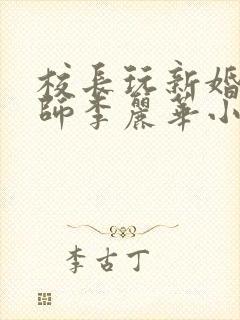 校長玩新婚
師李麗華小
李古丁